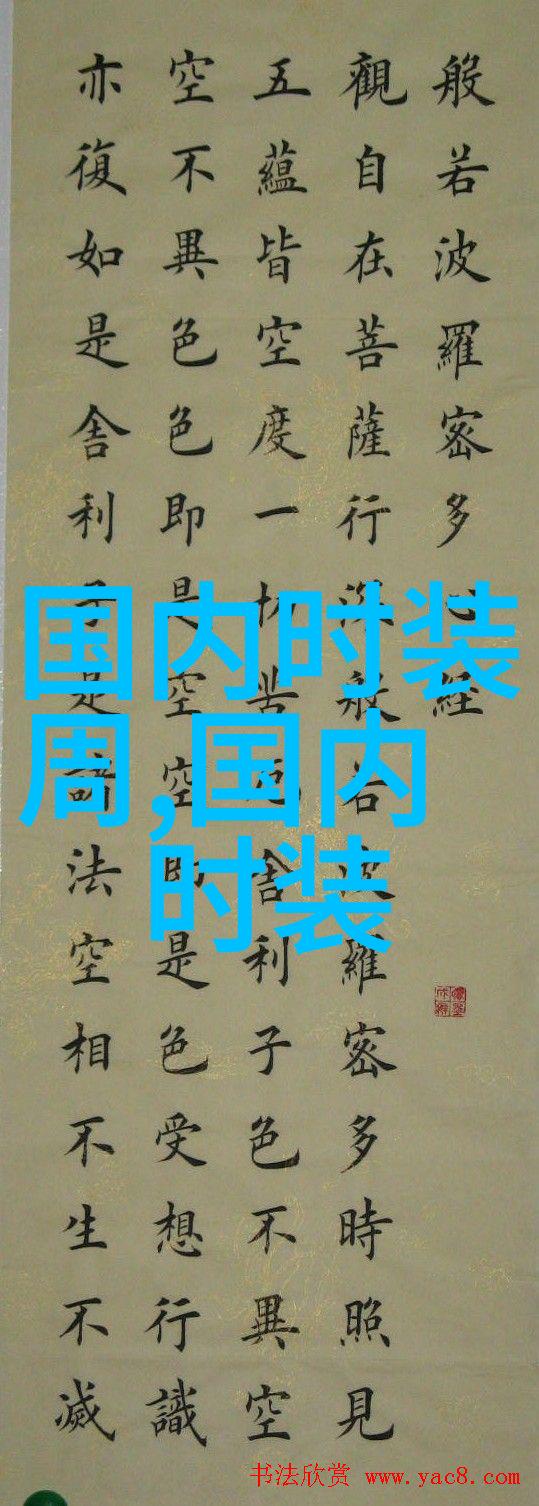 般若波羅密多心經
觀自在菩薩行深般若波羅密多時照見
五蘊皆空度一切苦厄舍利子色不異空
空不異色色即是空空即是色受想行識
亦復如是舍利子是諸法空相不生不滅
国内时装
周,国内
时装
书法欣赏 www.yac8.com